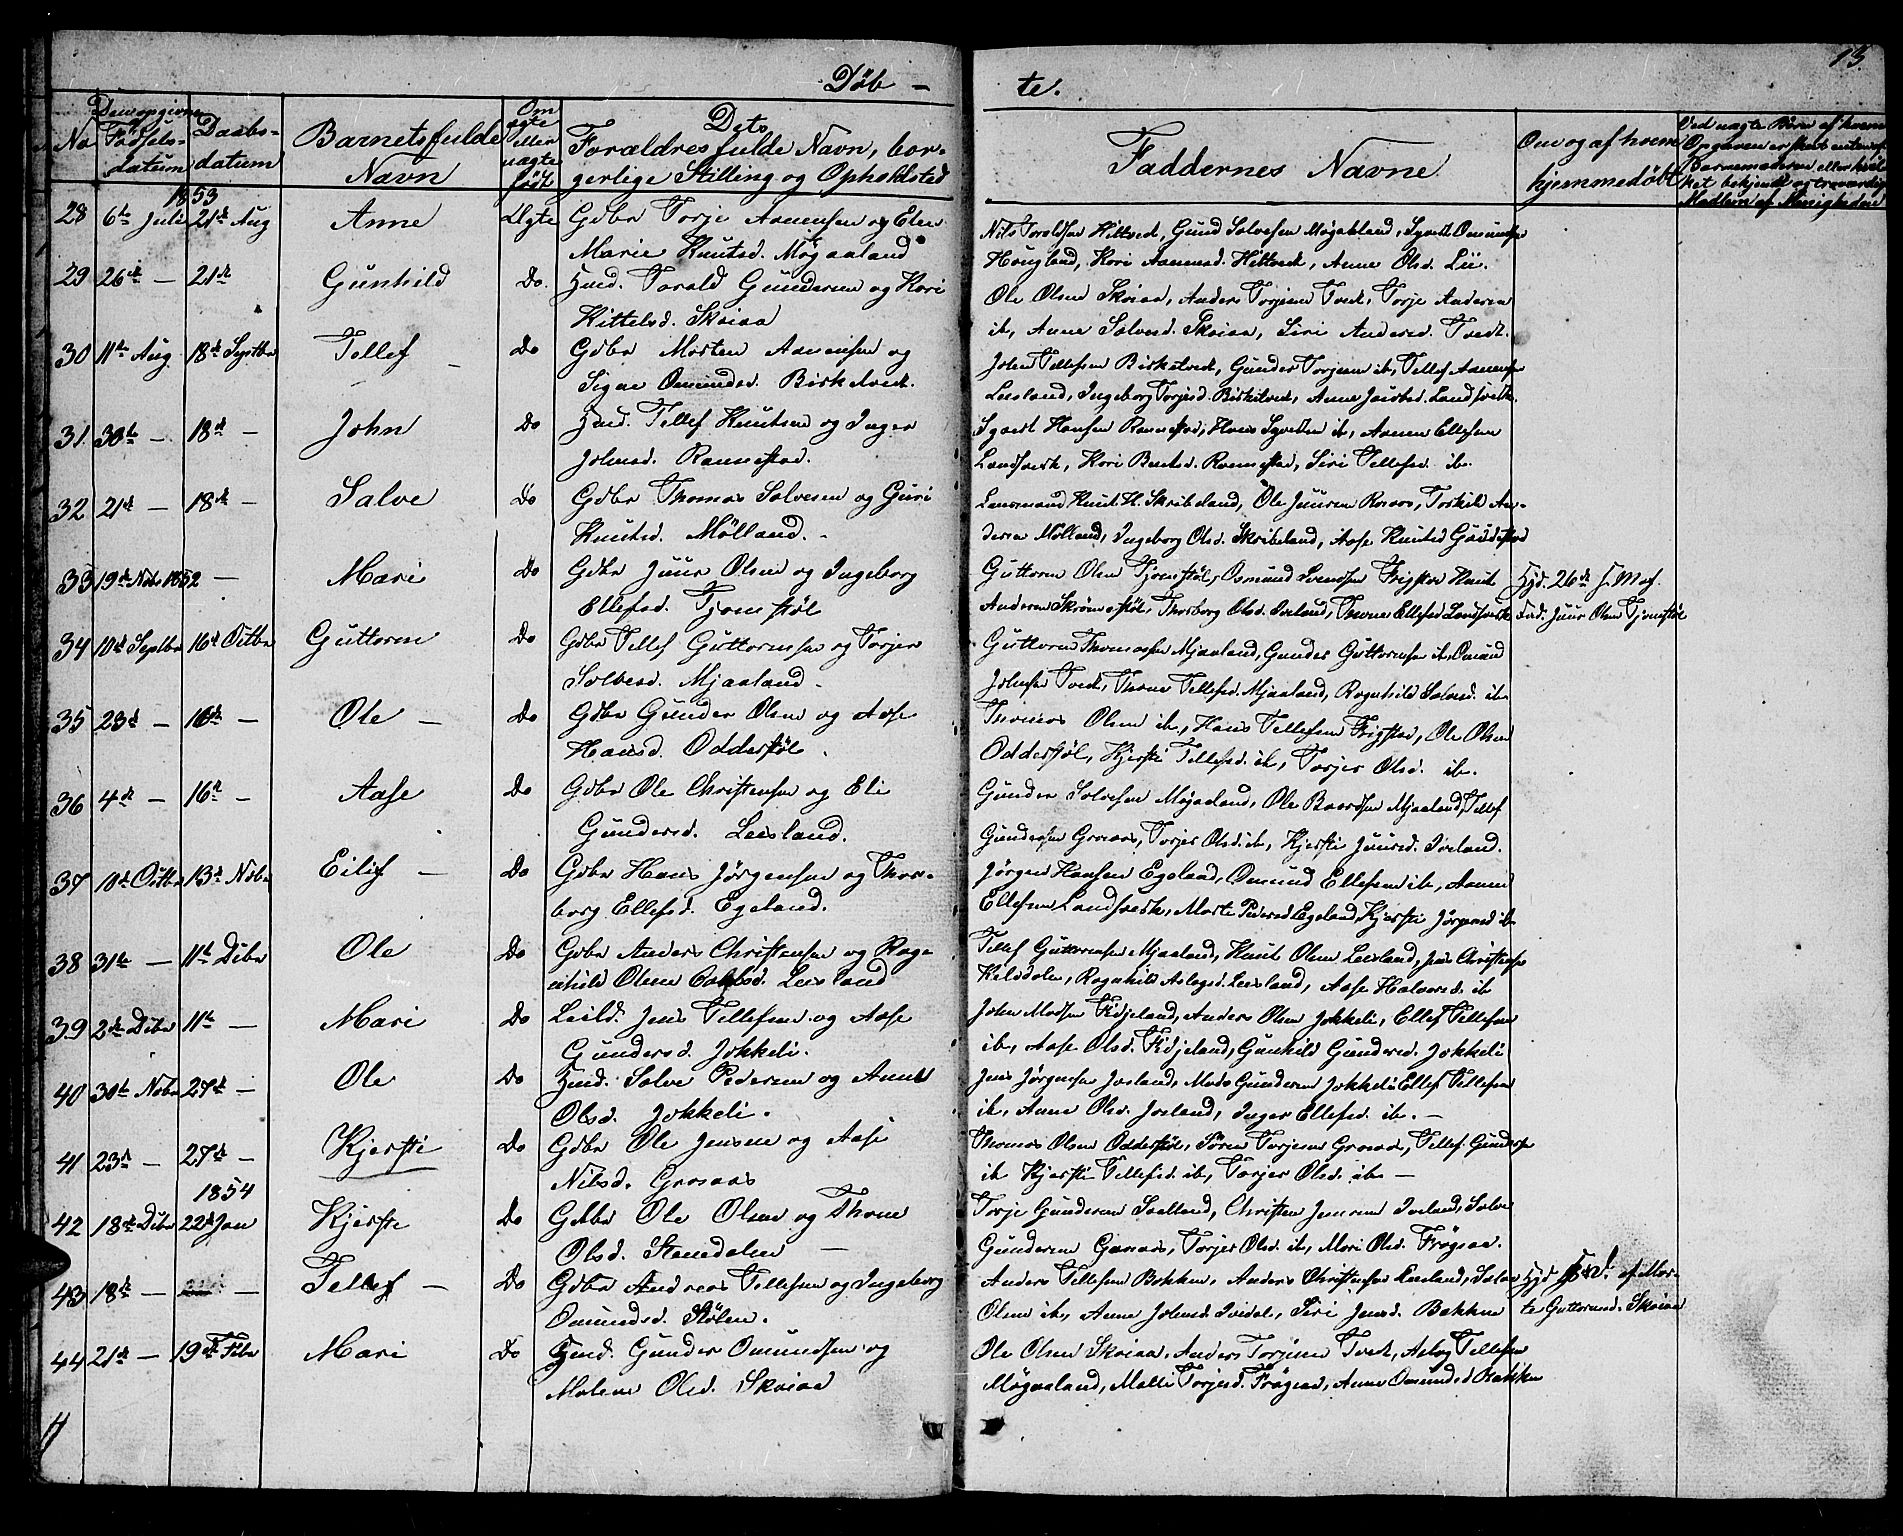 13.
Døb - te.
No
Den opgivne Fødsels-datum
Daabs-datum
Barnets fulde Navn
Om ægte eller uægte født
Dets Forældres fulde Navn, borgerlige Stilling og Opholdsted
Faddernes Navne
Om og af hvem hjemmedøbt
Ved uægte Børn af hvem Opgaven er sket enten af Barnemoderen eller
1853
28 6te Juli 21de Aug Anne Ægte Gdbr Torje Aanensen og Elen
Marie Knutsd. Møgaaland
Nils Toraldsen Hiltvedt, Gund Salvesen Møgaland, Syvert Omundsen
Hougland, Kari Aanensd. Hiltvedt, Anne Olsd. Lii.
29 26de — 21de Gunhild Do. Hmd. Torald Gundersen og Kari
Kittelsd. Skaiaa
Ole Olsen Skaiaa, Anders Torjesen Tvedt, Torje Andersen
ib, Anne Salvesd. Skaiaa, Siri Andersd. Tvedt.
30 11te Aug 18de Septbr Tellef — Do Gdbr Morten Aanensen og
Signe Omundsd. Birketvedt.
John Tellefsen Birketvedt, Gunder Torjesen ib, Tellef Aanensen
Leesland, Ingeborg Torjesd. Birketvedt, Anne Jacobsd. Landsverk.
31 30te — 18de — John Do Hmd. Tellef Knutsen og Inger
Johnsd. Rannestad.
Syvert Hansen Rannestad, Hans Syvertsen ib, Aanen Ellefsen
Landsverk, Kari Bentsd. Rannestad, Siri Tellefsd. ib.
32 21de — 18de — Salve Do Gdbr Thomas Salvesen og Guri
Knutsd. Mølland.
Lensmand Knut H. Skribeland, Ole Juursen Rosaas, Torkild An-
dersen Mølland, Ingeborg Olsd. Skribeland, Aase Knutsd
33 19de Nobr 1852 — Mari Do Gdbr Juur Olsen og Ingeborg
Ellefsd. Tjomstøl
Guttorm Olsen Tjomstøl, Osmund Svendsen Frigstad Knut
Andersen Skrømstøl, Thorborg Olsd. Iveland, Thone Ellefsd Landsverk
Hjd. 26de af
Fad. Juur Olsen Tjomstøl
34 10de Septbr 16de Octbr Guttorm Do Gdbr Tellef Guttormsen og Torjer
Salvesd. Mjaaland
Guttorm Thomassen Mjaaland, Gunder Guttormsen ib, Omund
Johnsen Tvedt, Thone Tellefsd. Mjaaland, Ragnhild Salvesd. ib
35 23de — 16de — Ole — Do Gdbr Gunder Olsen og Aase
Hansd. Odderstøl.
Thomas Olsen ib., Hans Tellefsen Frigstad, Ole Olsen
Odderstøl, Kjersti Tellefsd. ib, Torjer Olsd. ib.
36 4de — 16de — Aase Do Gdbr Ole Christensen og Eli
Gundersd. Leesland.
Gunder Salvesen Møgaland, Ole Baardsen Mjaaland, Tellef
Gundersen Grosaas, Torjer Olsd. ib, Kjersti Juursd. Iveland.
37 10de Octbr 13de Nobr Eilif — Do Gdbr Hans Jørgensen og Thor-
borg Ellefsd. Egeland.
Jørgen Hansen Egeland, Omund Ellefsen ib, Aanen
Ellefsen Landsverk, Marte Pedersd Egeland, Kjersti Jørgensd ib
38 31te — 11te Dcbr Ole Do Gdbr Anders Christensen og Rag-
nhild Olsen Leesland
Tellef Guttormsen Mjaaland, Knut Olsen Leesland, Jens Christensen
Keledalen, Ragnhild Aslagsd. Leesland, Aase Halvorsd. ib
39 2den Dcbr 11te — Mari Do Leild. Jens Tellefsen og Aase
Gundersd. Jokkeli.
John Madsen Fidjeland, Anders Olsen Jokkeli, Ellef Tellefsen
ib, Aase Olsd. Fidjeland, Gunhild Gundersd. Jokkeli
40 30te Nobr 27de — Ole Do Hmd. Salve Pedersen og Anne
Olsd. Jokkeli.
Jens Jørgensen Joreland, Mads Gundersen Jokkeli Ellef Tellefsen
ib, Anne Olsd. Joreland, Inger Ellefsd. ib. —
41 23de — 27de — Kjersti Do Gdbr Ole Jensen og Aase
Nilsd. Grosaas
Thomas Olsen Odderstøl, Søren Torjesen Grosaas, Tellef Gundersen
ib Kjersti Tellefsd. ib, Torjer Olsd. ib —
1854
42 18de Dcbr 22de Jan Kjersti Do Gdbr Ole Olsen og Thone
Olsd. Stemdalen —
Torje Gundersen Svelland, Christen Jensen Iveland, Salve
Gundersen Grosaas, Torjer Olsd. ib, Mari Olsd. Frøgsaa.
43 18de — — Tellef — Do Gdbr Andreas Tellefsen og Ingeborg
Omundsd. Stølen.
Anders Tellefsen Bakken, Anders Christensen, Salve
Olsen ib, Anne Johnsd., Siri Jensd. Bakken
Hjd af Mar-
te Guttormsd. Skaiaa
44 21de — 19de Febr Mari Do Hmd. Gunder Omundsen og
Malene Olsd. Skaiaa
Ole Olsen Skaiaa, Anders Torjesen Tvedt, Aslag Tellefsen
Møgaaland, Malli Torjesd. Frøgsaa, Anne Omundsd Bakken